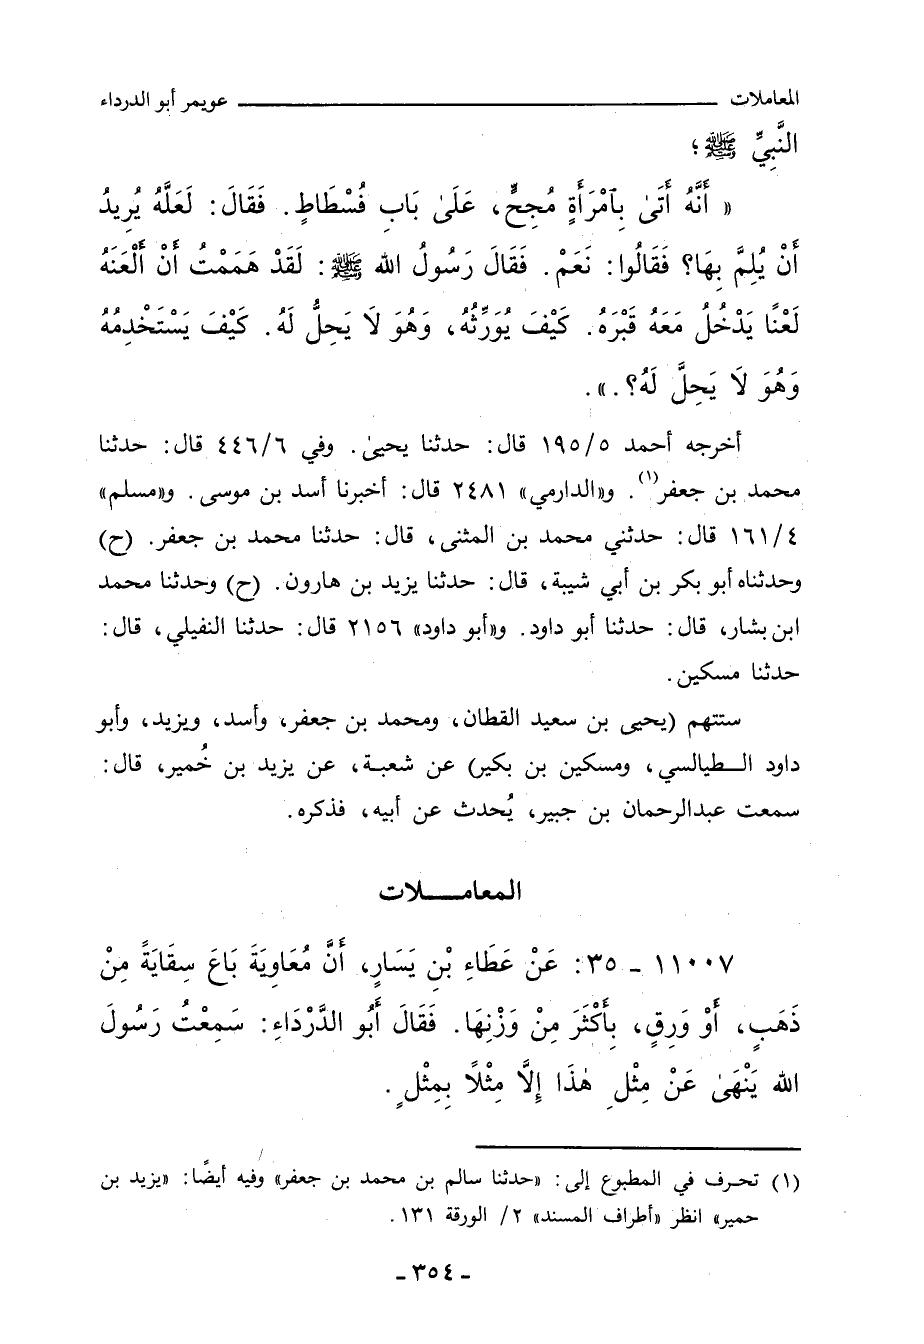 المعاملات ــــــــــــــــــــ عويمر أبو الدرداء
النَّبِيِّ ﷺ ؛
« أَنَّهُ أَتَىٰ بِٱمْرَأَةٍ مُجِحٍّ، عَلَىٰ بَابِ فُسْطَاطٍ. فَقَالَ: لَعَلَّهُ يُرِيدُ
أَنْ يُلِمَّ بِهَا؟ فَقَالُوا: نَعَمْ. فَقَالَ رَسُولُ الله ﷺ: لَقَدْ هَمَمْتُ أَنْ أَلْعَنَهُ
لَعْنًا يَدْخُلُ مَعَهُ قَبْرَهُ. كَيْفَ يُوَرِّثُهُ، وَهُوَ لَا يَحِلُّ لَهُ. كَيْفَ يَسْتَخْدِمُهُ
وَهُوَ لَا يَحِلَّ لَهُ؟.».
أخرجه أحمد ١٩٥/٥ قال: حدثنا يحيىٰ. وفي ٤٤٦/٦ قال: حدثنا
محمد بن جعفر(١). و«الدارمي» ٢٤٨١ قال: أخبرنا أسد بن موسى. و«مسلم»
١٦١/٤ قال: حدثني محمد بن المثنى، قال: حدثنا محمد بن جعفر. (ح)
وحدثناه أبو بكر بن أبي شيبة، قال: حدثنا يزيد بن هارون. (ح) وحدثنا محمد
ابن بشار، قال: حدثنا أبو داود. و«أبو داود» ٢١٥٦ قال: حدثنا النفيلي، قال:
حدثنا مسكين.
ستتهم (يحيى بن سعيد القطان، ومحمد بن جعفر، وأسد، ويزيد، وأبو
داود الطيالسي، ومسكين بن بكير) عن شعبة، عن يزيد بن خُمير، قال:
سمعت عبدالرحمان بن جبير، يُحدث عن أبيه، فذكره.
المعامـــلات
١١٠٠٧ ـ ٣٥: عَنْ عَطَاءِ بْنِ يَسَارٍ، أَنَّ مُعَاوِيَةَ بَاعَ سِقَايَةً مِنْ
ذَهَبٍ، أَوْ وَرِقٍ، بِأَكْثَرَ مِنْ وَزْنِهَا. فَقَالَ أَبُو الدَّرْدَاءِ: سَمِعْتُ رَسُولَ
الله يَنْهَىٰ عَنْ مِثْلِ هٰذَا إِلَّا مِثْلًا بِمِثْلٍ.
(١) تحرف في المطبوع إلى: «حدثنا سالم بن محمد بن جعفر» وفيه أيضًا: «يزيد بن
حمير» انظر «أطراف المسند» ٢/ الورقة ١٣١.
ـ ٣٥٤ ـ